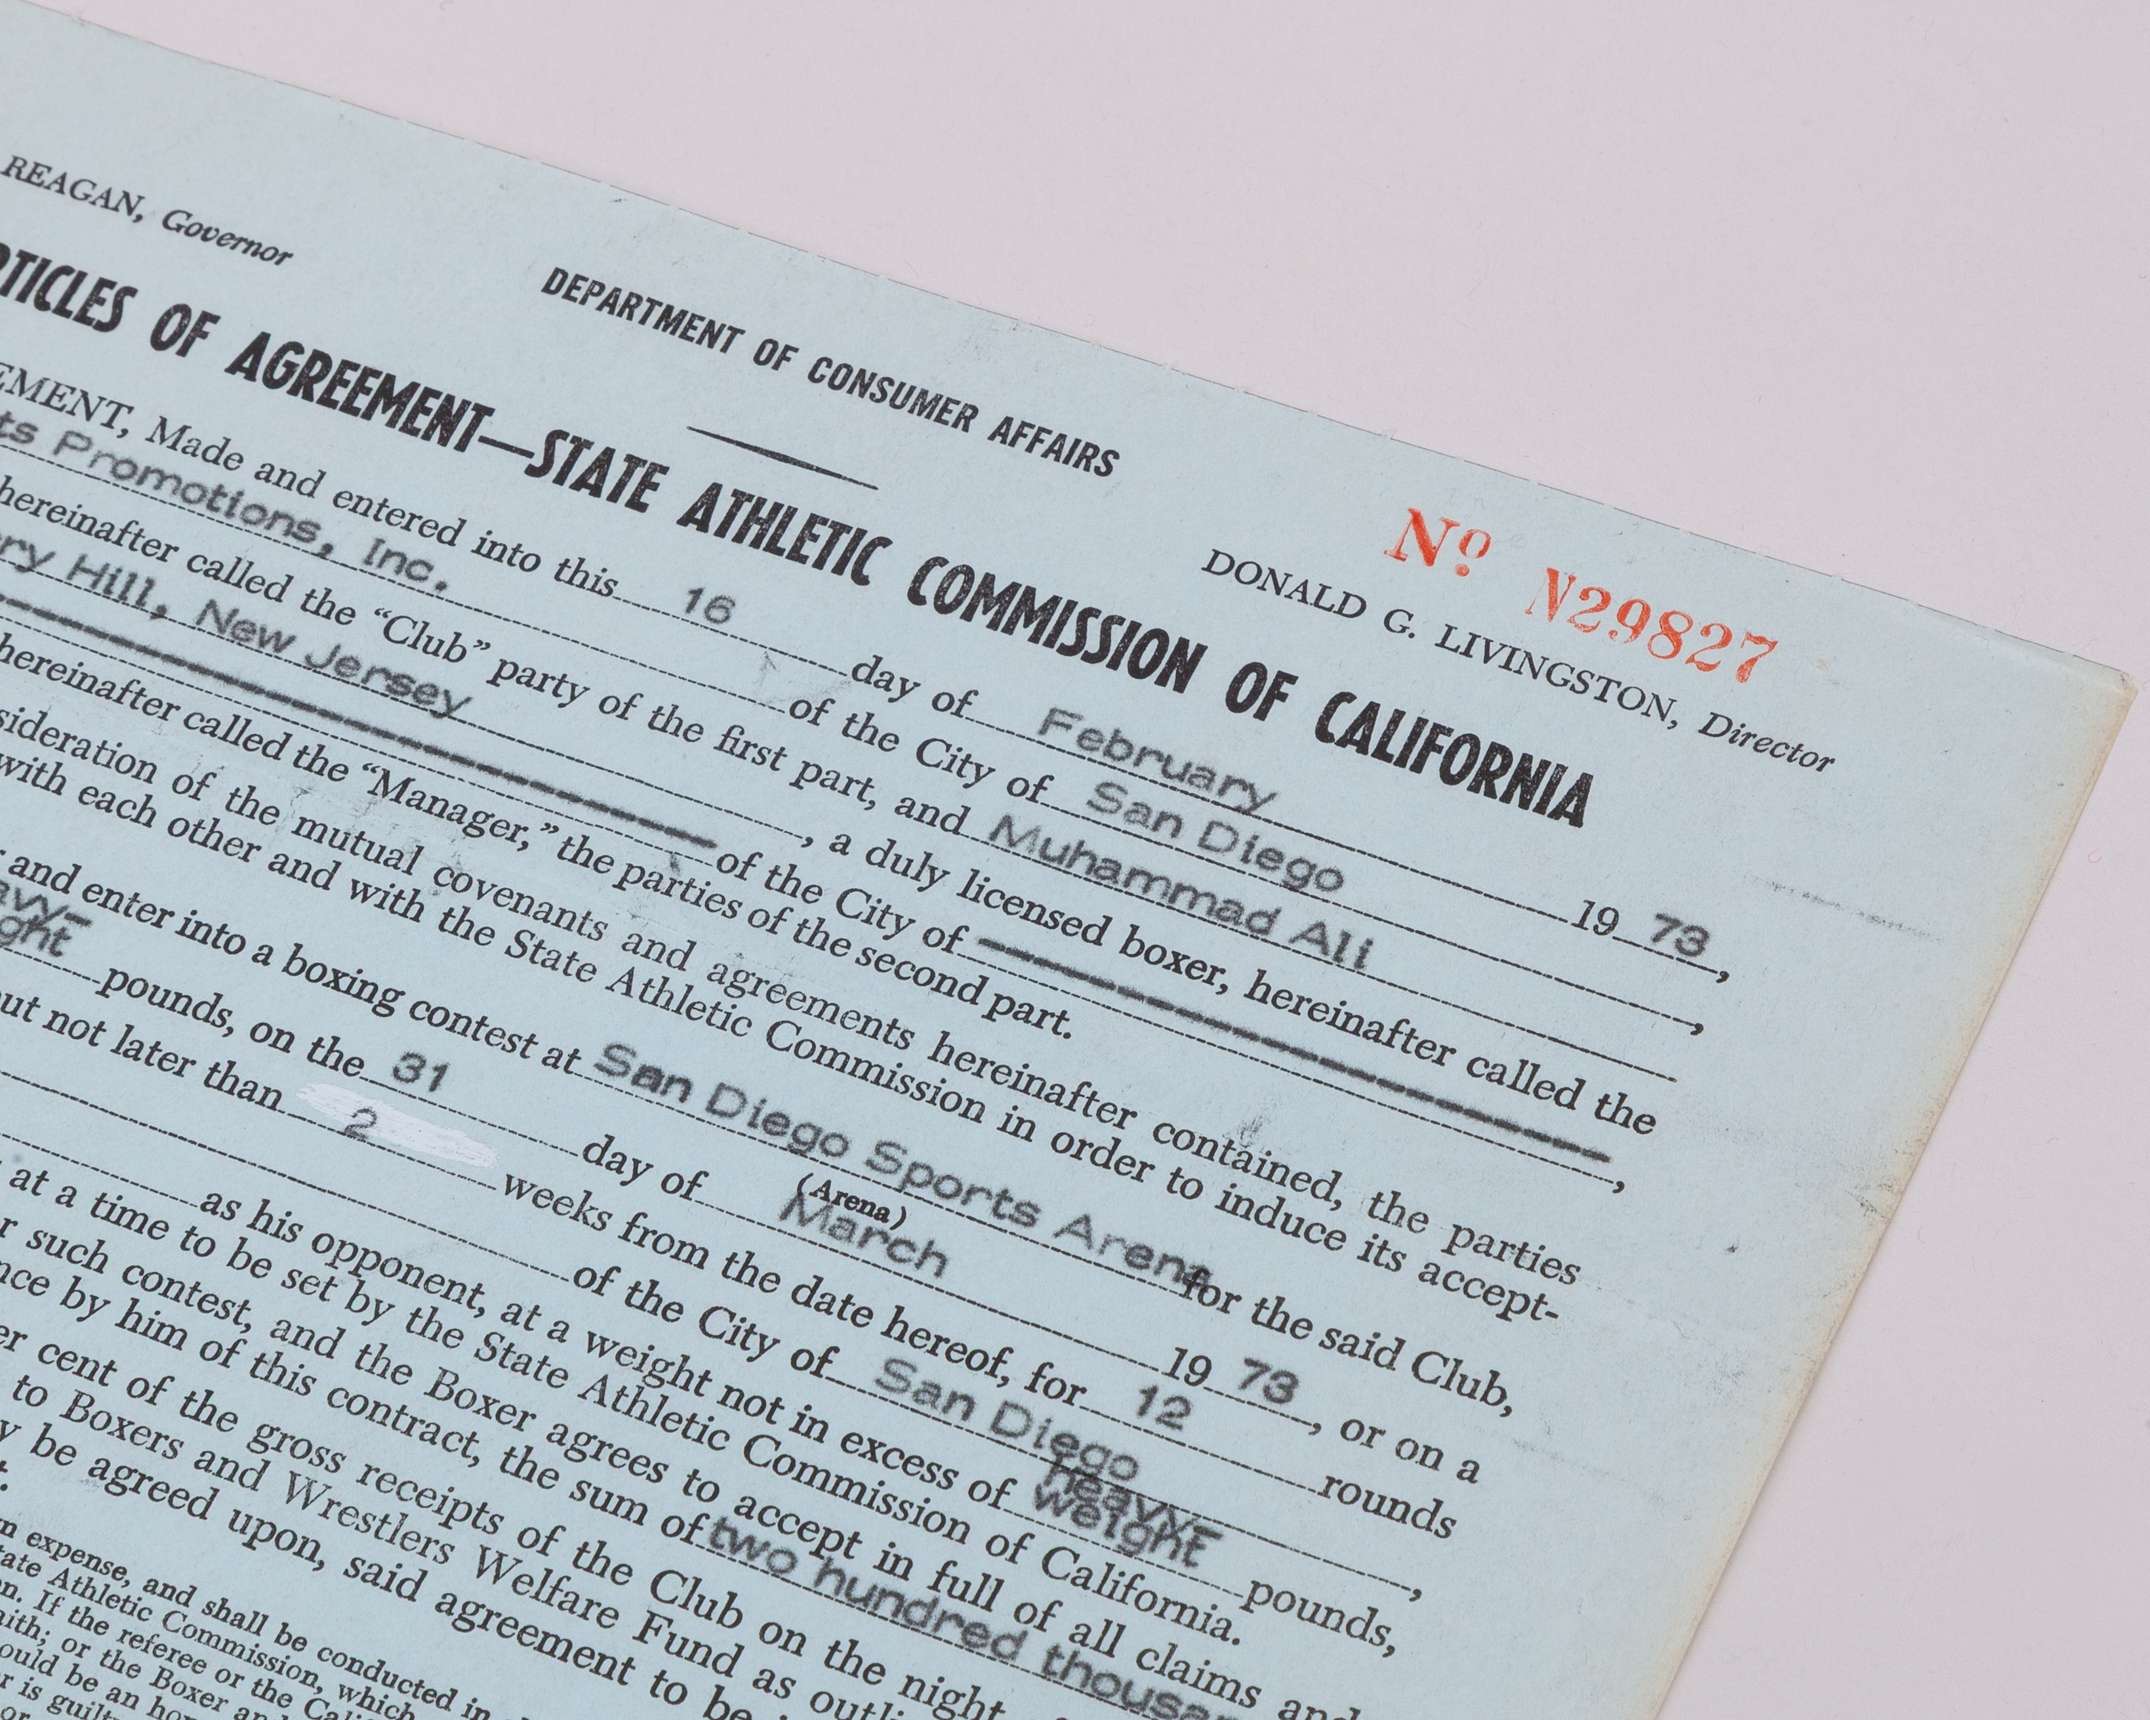 REAGAN, Governor
DEPARTMENT OF CONSUMER AFFAIRS
Nº N29827
DONALD G. LIVINGSTON, Director
ARTICLES OF AGREEMENT—STATE ATHLETIC COMMISSION OF CALIFORNIA
EMENT, Made and entered into this 16 day of February 19 73,
ts Promotions, Inc. of the City of San Diego,
hereinafter called the "Club" party of the first part, and Muhammad Ali
ry Hill, New Jersey, a duly licensed boxer, hereinafter called the
of the City of ,
hereinafter called the "Manager," the parties of the second part.
sideration of the mutual covenants and agreements hereinafter contained, the parties
with each other and with the State Athletic Commission in order to induce its accept-
and enter into a boxing contest at San Diego Sports Arena for the said Club,
(Arena)
avy-
ght pounds, on the 31 day of March 19 73, or on a
ut not later than 2 weeks from the date hereof, for 12 rounds
of the City of San Diego,
as his opponent, at a weight not in excess of heavy-
weight pounds,
at a time to be set by the State Athletic Commission of California.
r such contest, and the Boxer agrees to accept in full of all claims and
nce by him of this contract, the sum of two hundred thousan
er cent of the gross receipts of the Club on the night
to Boxers and Wrestlers Welfare Fund as outli
y be agreed upon, said agreement to be
t.
n expense, and shall be conducted in
tate Athletic Commission, which
n. If the referee or the Calif
aith; or the Boxer an
ould be an hon
r is guilt